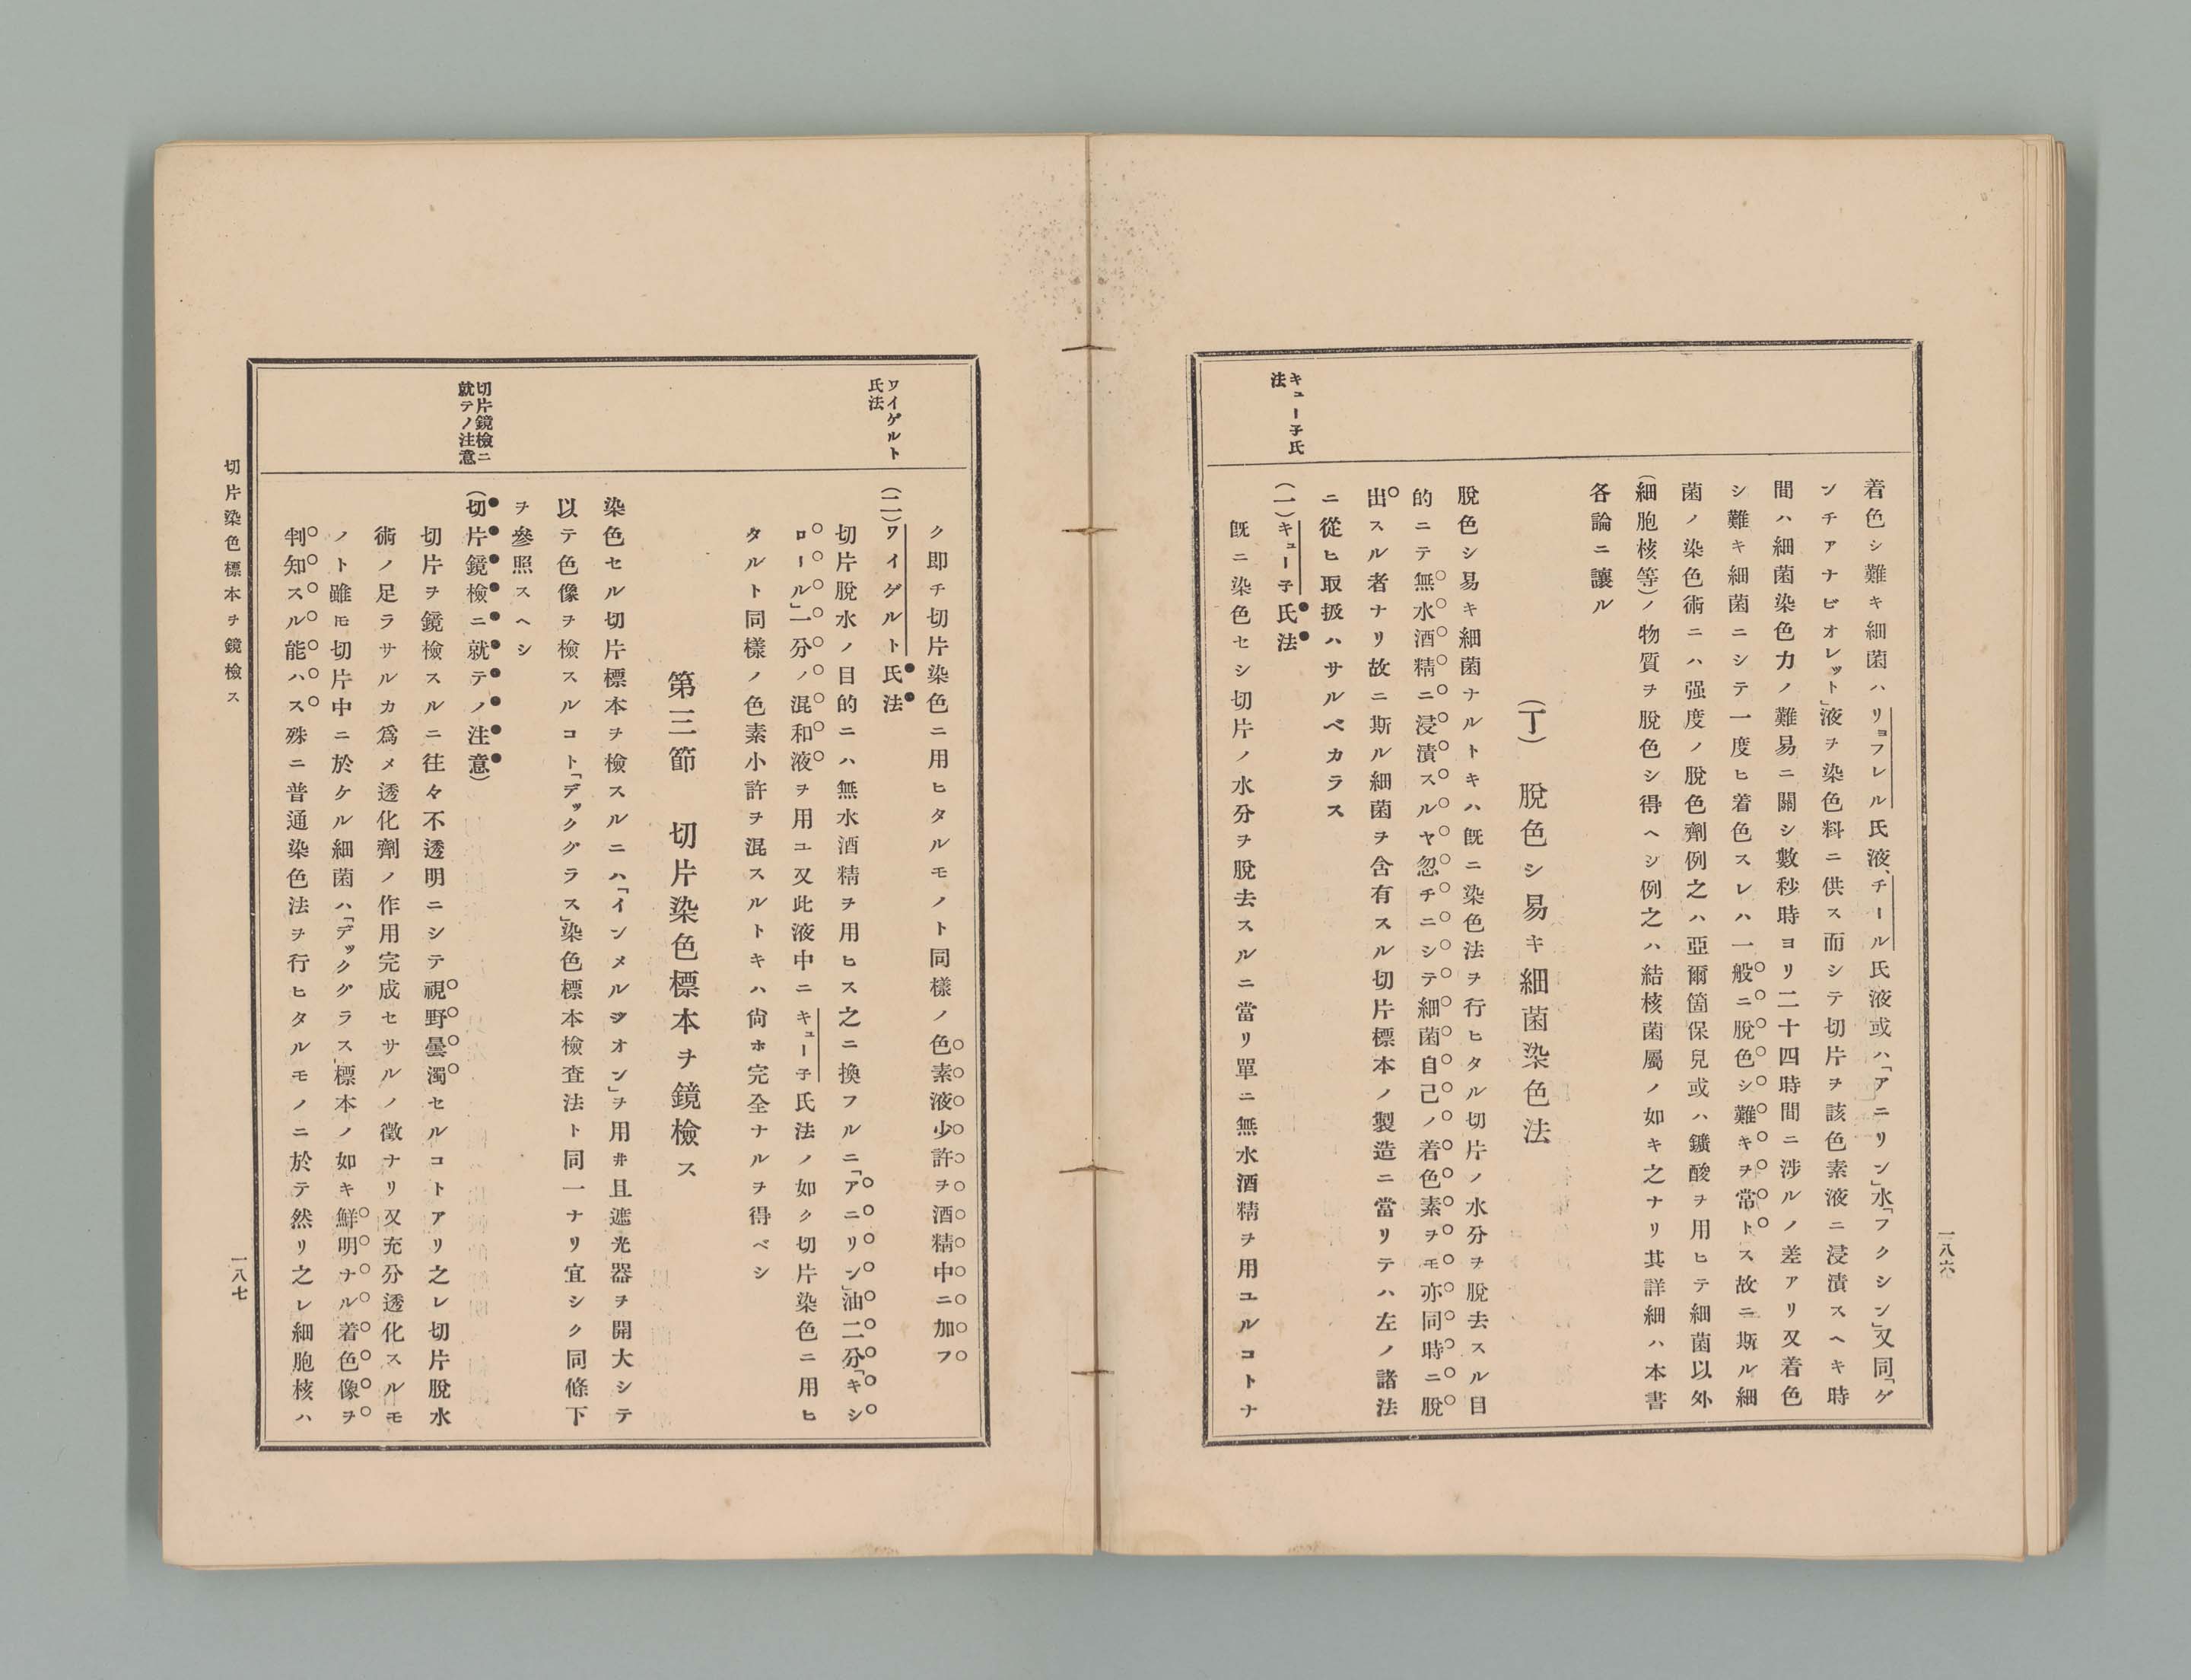 キュー子氏
法
着色シ難キ細菌ハリョフレル氏液、チール氏液或ハ「アニリン」水「フクシン」又同「ゲ
ンチアナビオレット」液ヲ染色料ニ供ス而シテ切片ヲ該色素液ニ浸漬スヘキ時
間ハ細菌染色力ノ難易ニ關シ數秒時ヨリ二十四時間ニ渉ルノ差アリ又着色
シ難キ細菌ニシテ一度ヒ着色スレハ一般ニ脫色シ難キヲ常トス故ニ斯ル細
菌ノ染色術ニハ强度ノ脫色劑例之ハ亞爾箇保兒或ハ鑛酸ヲ用ヒテ細菌以外
(細胞核等)ノ物質ヲ脫色シ得ヘシ例之ハ結核菌屬ノ如キ之ナリ其詳細ハ本書
各論ニ讓ル
(丁) 脫色シ易キ細菌染色法
脫色シ易キ細菌ナルトキハ旣ニ染色法ヲ行ヒタル切片ノ水分ヲ脫去スル目
的ニテ無水酒精ニ浸漬スルヤ忽チニシテ細菌自己ノ着色素ヲモ亦同時ニ脫
出スル者ナリ故ニ斯ル細菌ヲ含有スル切片標本ノ製造ニ當リテハ左ノ諸法
ニ從ヒ取扱ハサルベカラス
(一)キュー子氏法
旣ニ染色セシ切片ノ水分ヲ脫去スルニ當リ單ニ無水酒精ヲ用ユルコトナ
一八六
ワイゲルト
氏法
切片鏡檢ニ
就テノ注意
ク即チ切片染色ニ用ヒタルモノト同樣ノ色素液少許ヲ酒精中ニ加フ
(二)ワイゲルト氏法
切片脫水ノ目的ニハ無水酒精ヲ用ヒス之ニ換フルニ「アニリン」油二分「キシ
ロール」一分ノ混和液ヲ用ユ又此液中ニキュー子氏法ノ如ク切片染色ニ用ヒ
タルト同樣ノ色素小許ヲ混スルトキハ尙ホ完全ナルヲ得ベシ
第三節 切片染色標本ヲ鏡檢ス
染色セル切片標本ヲ檢スルニハ「インメルジオン」ヲ用井且遮光器ヲ開大シテ
以テ色像ヲ檢スルコト「デックグラス」染色標本檢査法ト同一ナリ宜シク同條下
ヲ參照スヘシ
(切片鏡檢ニ就テノ注意)
切片ヲ鏡檢スルニ往々不透明ニシテ視野曇濁セルコトアリ之レ切片脫水
術ノ足ラサルカ爲メ透化劑ノ作用完成セサルノ徵ナリ又充分透化スルモ
ノト雖𪜈切片中ニ於ケル細菌ハ「デックグラス」標本ノ如キ鮮明ナル着色像ヲ
判知スル能ハス殊ニ普通染色法ヲ行ヒタルモノニ於テ然リ之レ細胞核ハ
切片染色標本ヲ鏡檢ス
一八七